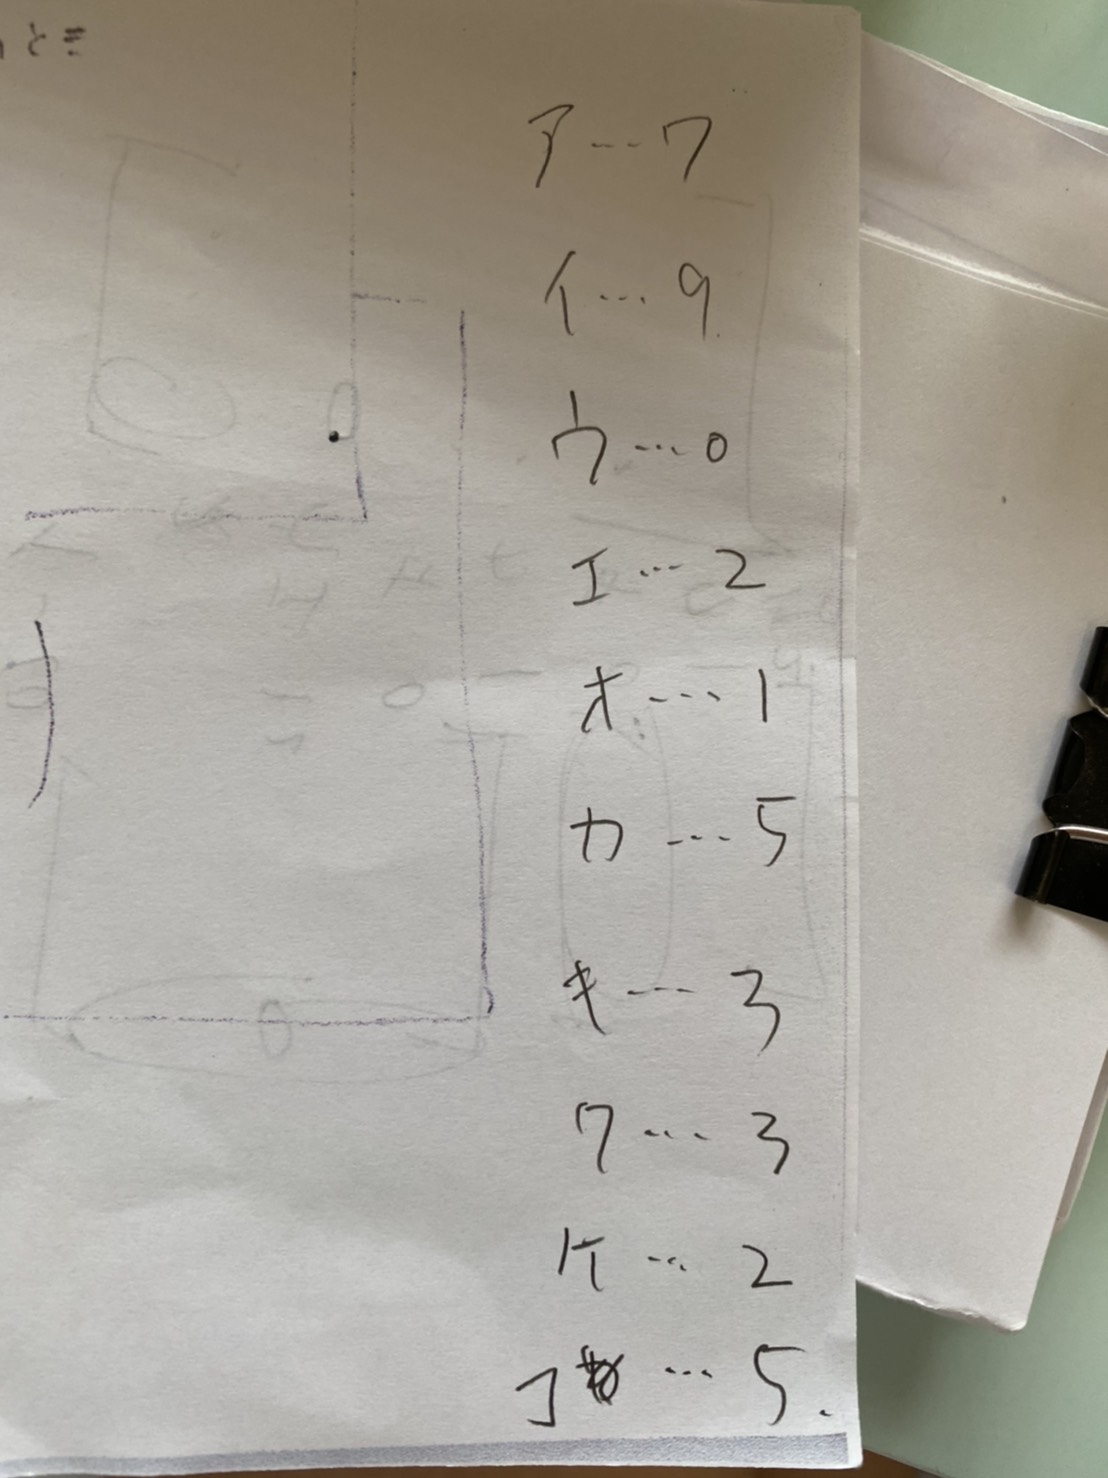 とき
ア…7
イ…9
ウ…0
エ…2
オ…1
カ…5
キ…3
ク…3
ケ…2
コ…5.